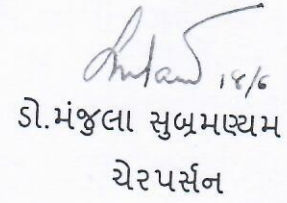 18/6
ડો.મંજુલા સુબ્રમણ્યમ
ચેરપર્સન